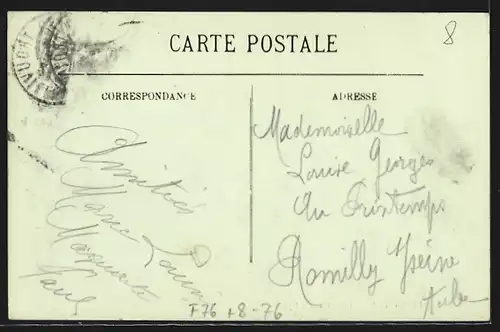 8
CARTE POSTALE
CORRESPONDANCE
ADRESSE
Amitiés
Marie Louise
Marguerite
Paul
Mademoiselle
Louise Georges
Au Printemps
Romilly s/Seine
Aube
F76 +8-76